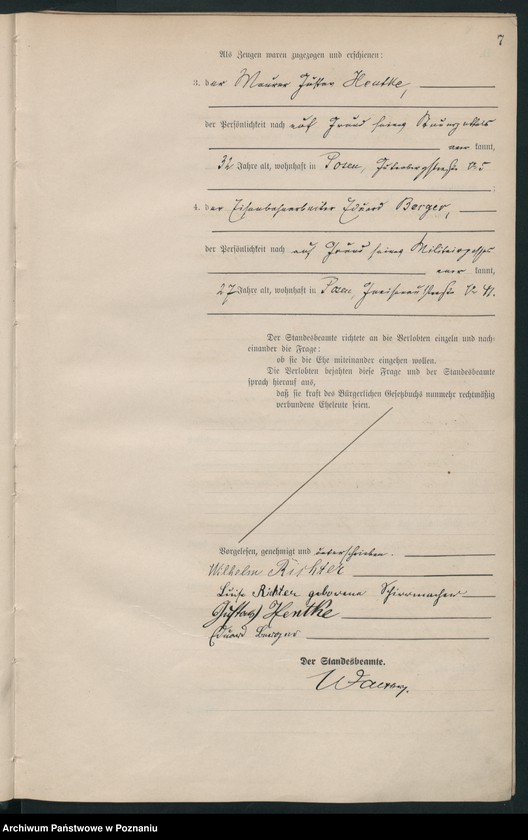 7
Als Zeugen waren zugezogen und erschienen:
3. der Maurer Gustav Hentke,
der Persönlichkeit nach auf Grund seines
kannt,
32 Jahre alt, wohnhaft in Posen, Gutenbergstraße № 5
;
4. der Eisenbahnarbeiter Eduard Berger,
der Persönlichkeit nach auf Grund seines Militairpasses
kannt,
27 Jahre alt, wohnhaft in Posen,
Der Standesbeamte richtete an die Verlobten einzeln und nach-
einander die Frage:
ob sie die Ehe miteinander eingehen wollen.
Die Verlobten bejahten diese Frage und der Standesbeamte
sprach hierauf aus,
daß sie kraft des Bürgerlichen Gesetzbuchs nunmehr rechtmäßig
verbundene Eheleute seien.
Vorgelesen, genehmigt und unterschrieben.
Wilhelm Richter
Luise Richter geborene Schirrmacher
Gustav Hentke
Eduard Berger
Der Standesbeamte.
Archiwum Państwowe w Poznaniu